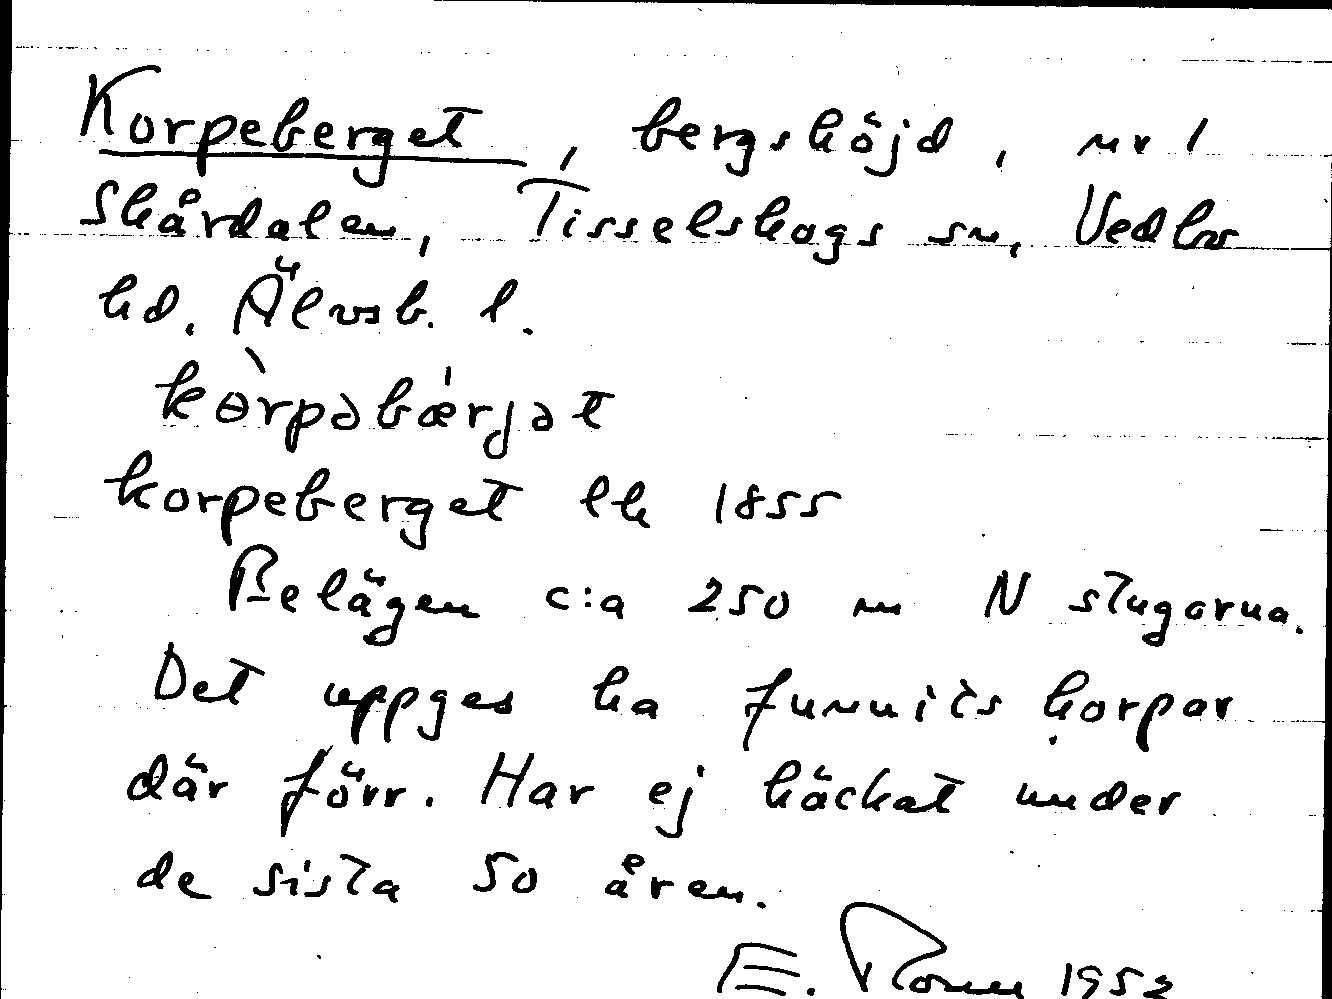 Korpeberget, bergshöjd, nr 1
Skårdalen, Tisselskogs sn, Vedbo
hd. Älvsb. l.
kòrpəbǽrjət
korpeberget lk 1855
Belägen c:a 250 m N stugorna.
Det uppges ha funnits korpar
där förr. Har ej häckat under
de sista 50 åren.
E. 1952